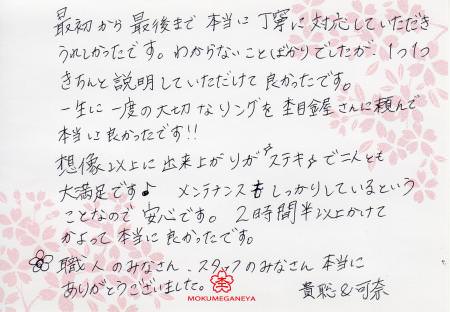 最初から最後まで本当に丁寧に対応していただき
うれしかったです。わからないことばかりでしたが、1つ1つ
きちんと説明していただけて良かったです。
一生に一度の大切なリングを杢目金屋さんに頼んで
本当に良かったです!!
想像以上に出来上がりがステキで二人とも
大満足です♪ メンテナンスもしっかりしているという
ことなので安心です。2時間半以上かけて
かよって本当に良かったです。
職人のみなさん、スタッフのみなさん本当に
ありがとうございました。
杢
MOKUMEGANEYA
貴聡&可奈